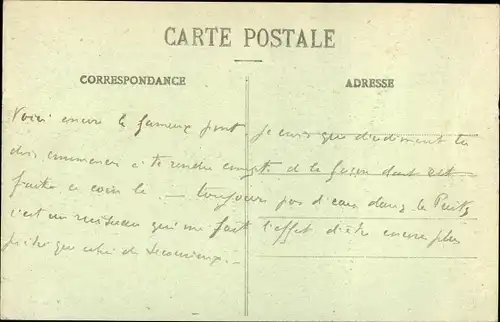 CARTE POSTALE
CORRESPONDANCE
ADRESSE
Voici encore le fameux pont. Je crois que décidément tu
dois commencer à te rendre compte de la façon dont est
faite ce coin là. — Toujours pas d'eau dans le Puits
c'est un ruisseau qui me fait l'effet d'être encore plus
que celui de